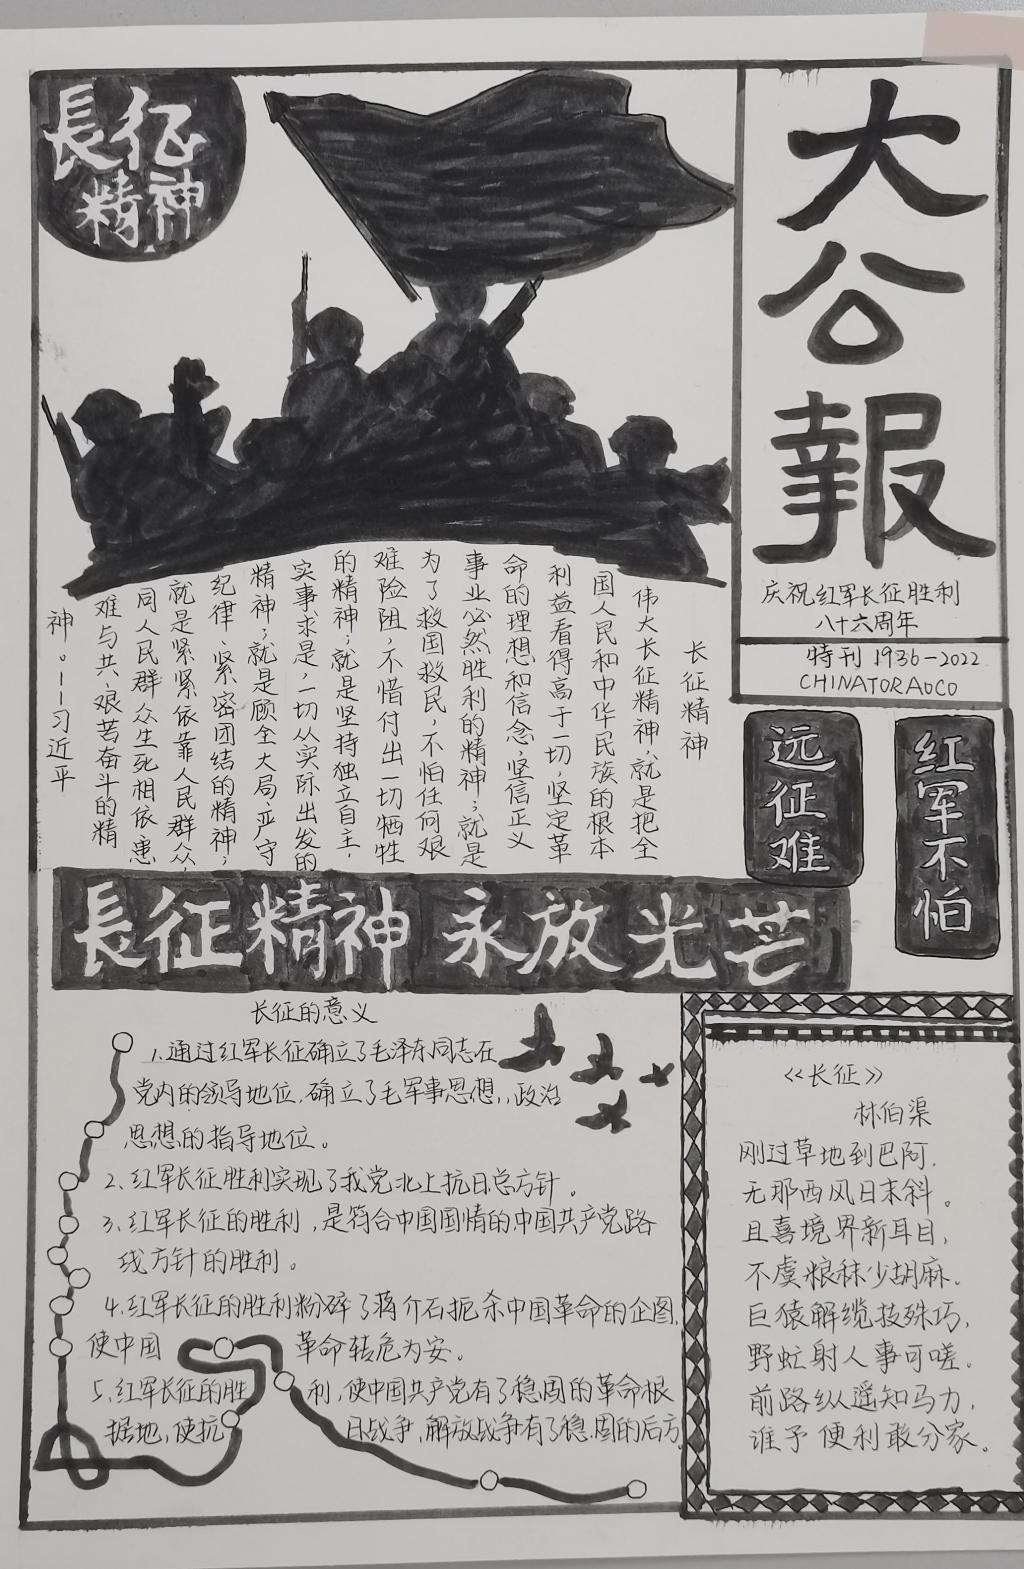 長征
精神
大
公
報
庆祝红军长征胜利
八十六周年
特刊 1936-2022
CHINATORAOCO
红军不怕
远征难
长征精神
伟大长征精神，就是把全
国人民和中华民族的根本
利益看得高于一切，坚定革
命的理想和信念，坚信正义
事业必然胜利的精神；就是
为了救国救民，不怕任何艰
难险阻，不惜付出一切牺牲
的精神；就是坚持独立自主，
实事求是，一切从实际出发的
精神；就是顾全大局、严守
纪律、紧密团结的精神；
就是紧紧依靠人民群众，
同人民群众生死相依、患
难与共、艰苦奋斗的精
神。——习近平
長征精神 永放光芒
长征的意义
1.通过红军长征确立了毛泽东同志在
党内的领导地位，确立了毛军事思想，，政治
思想的指导地位。
2、红军长征胜利实现了我党北上抗日总方针。
3、红军长征的胜利，是符合中国国情的中国共产党路
线方针的胜利。
4、红军长征的胜利粉碎了蒋介石扼杀中国革命的企图，
使中国革命转危为安。
5、红军长征的胜利，使中国共产党有了稳固的革命根
据地，使抗日战争，解放战争有了稳固的后方
《长征》
林伯渠
刚过草地到巴阿，
无那西风日末斜。
且喜境界新耳目，
不虞粮秣少胡麻。
巨猿解缆技殊巧，
野虻射人事可嗟。
前路纵遥知马力，
谁予便利敢分家。